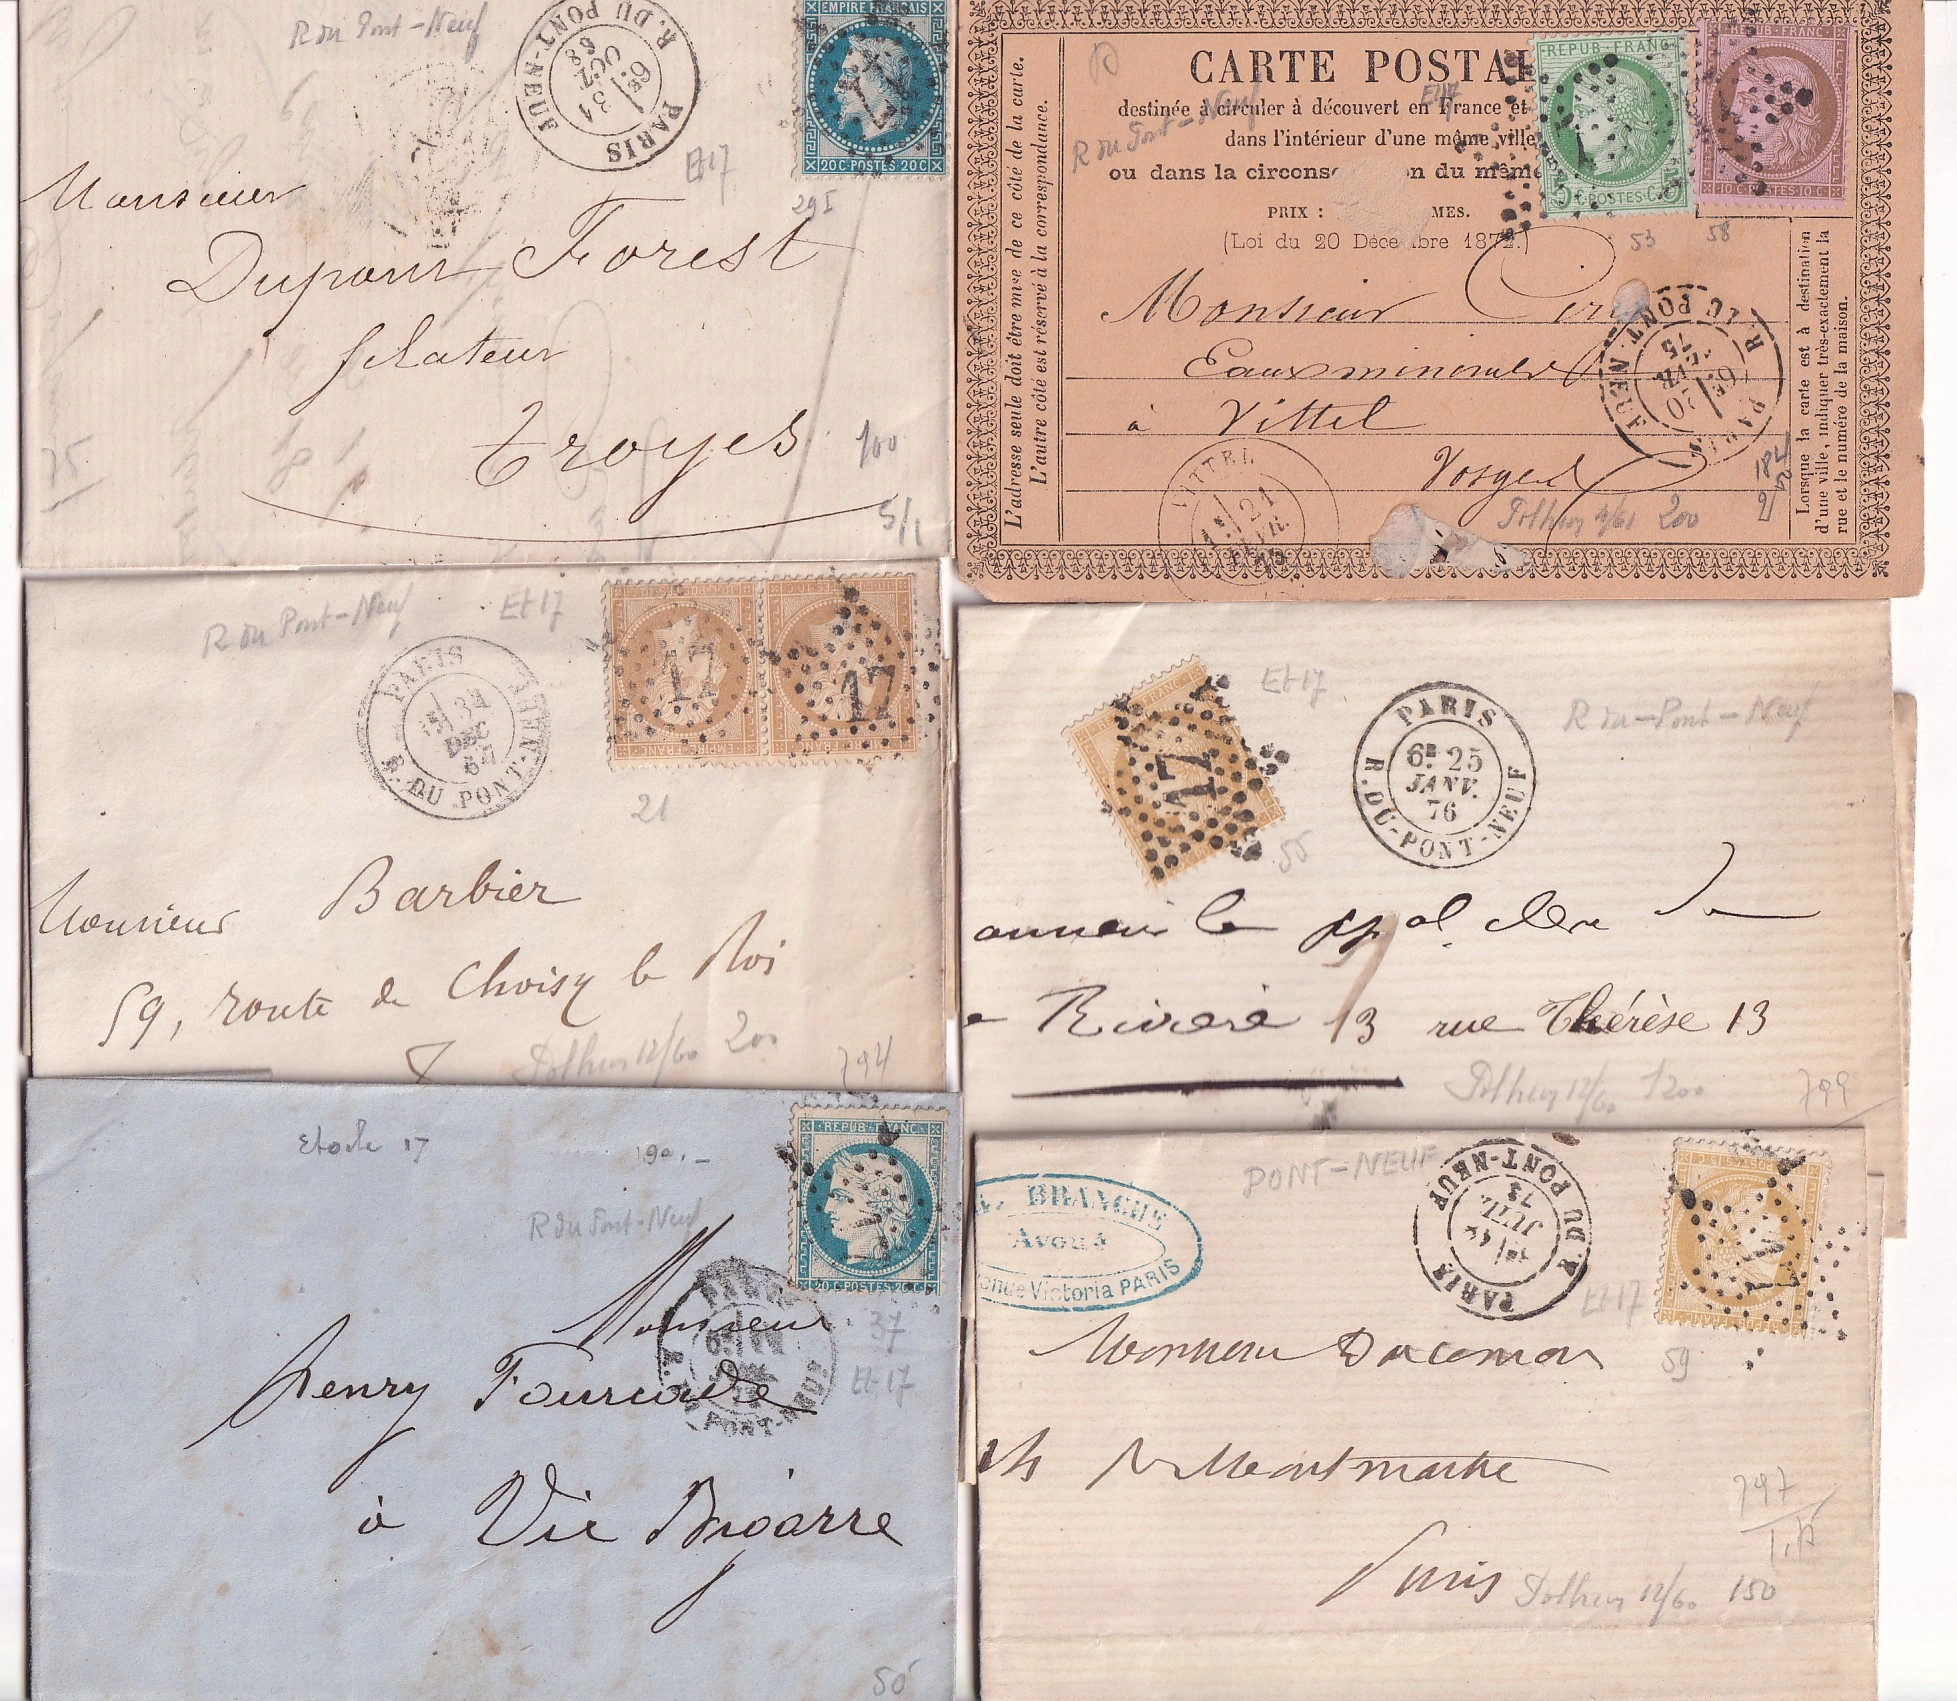 R du Pont-Neuf
PARIS
R. DU PONT-NEUF
6E 31
OCT
68
EMPIRE FRANÇAIS
20C·POSTES·20C
17
Et 17
29I
Monsieur
Dupont Forest
filateur
Troyes
100
5/1
75
CARTE POSTAL
destinée à circuler à découvert en France et
dans l'intérieur d'une même ville
ou dans la circons on du même
PRIX : MES.
(Loi du 20 Décembre 1872.)
L'adresse seule doit être mise de ce côté de la carte.
L'autre côté est réservé à la correspondance.
Lorsque la carte est à destination
d'une ville, indiquer très-exactement la
rue et le numéro de la maison.
R du Pont-Neuf
Et 17
REPUB·FRANC
5 C·POSTES·C 5
REPUB·FRANC
10·C·POSTES·10·C
53
58
Monsieur
Eaux minérales
à Vittel
Vosges
PARIS
R. DU PONT NEUF
6E 20
75
VITTEL
21
FEVR.
75
200
R du Pont-Neuf
Et 17
PARIS
R. DU PONT-NEUF
31
DEC
EMPIRE FRANC
17
17
21
Monsieur Barbier
59, route de Choisy le Roi
12/60 200
794
Et 17
R du-Pont-Neuf
17
55
PARIS
R. DU-PONT-NEUF
6E 25
JANV.
76
Rivière 13 rue Thérèse 13
12/60 1200
799
Etoile 17
90.-
R du Pont-Neuf
REPUB·FRANC
20·C·POSTES·20·C
17
PARIS
PONT-NEUF
37
Et 17
Monsieur
Henry Fourcade
à Vic Bigorre
50
PONT-NEUF
BRANCHE
Avoué
Victoria PARIS
PARIS
R. DU PONT-NEUF
JUIL
73
17
Et 17
59
Montmartre
Paris
797
12/60 150